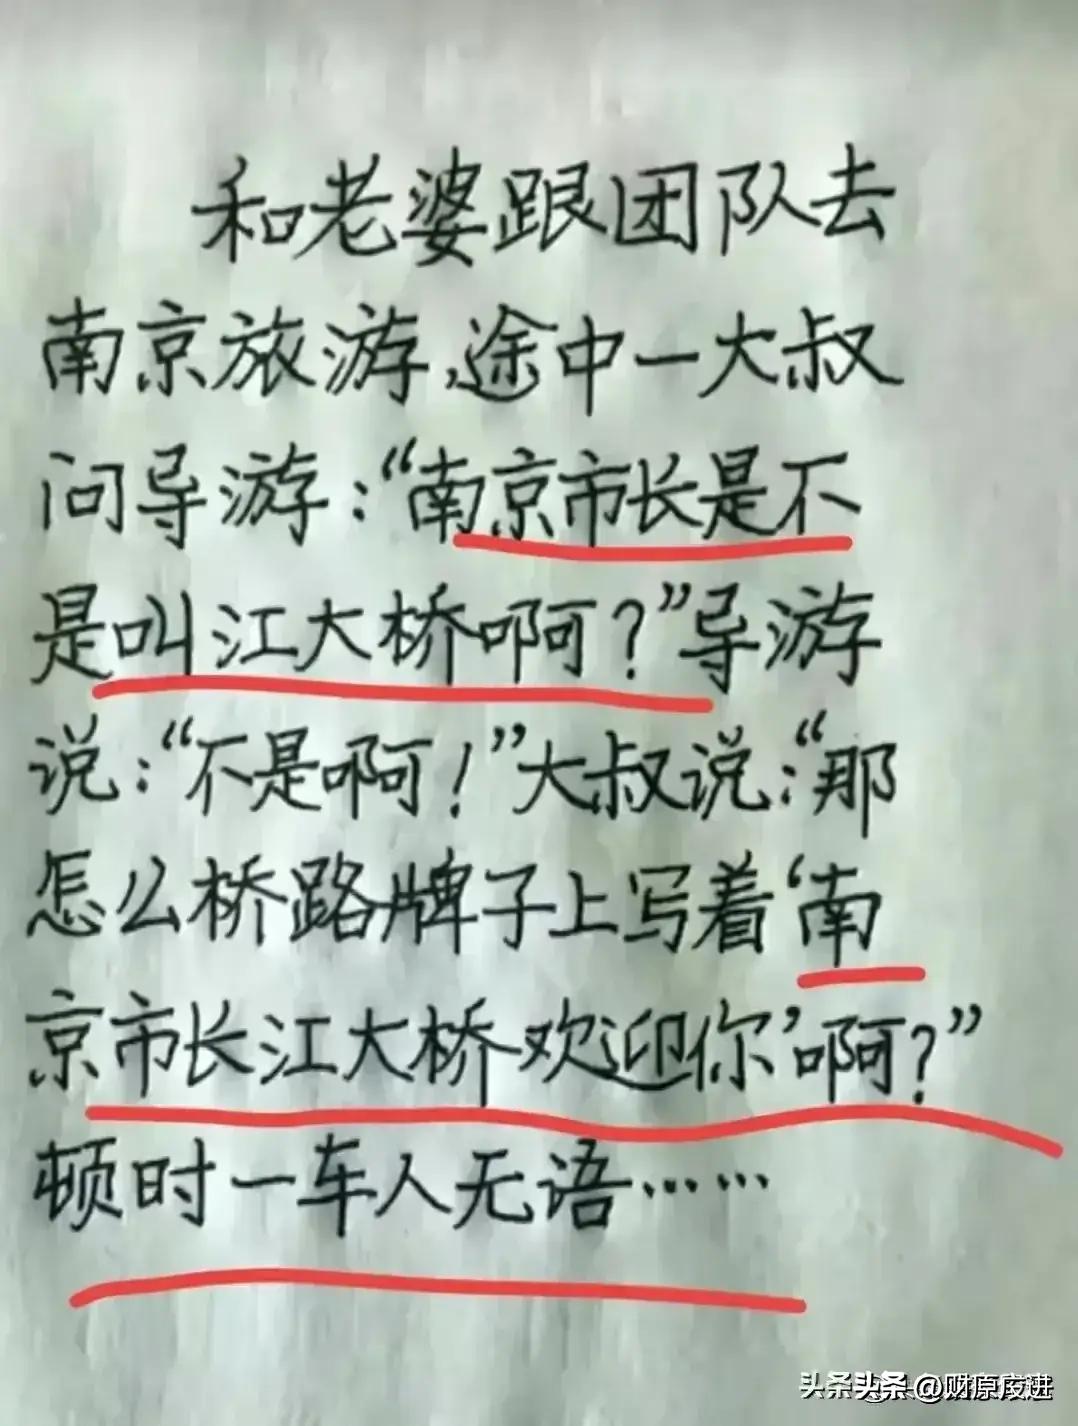 和老婆跟团队去
南京旅游,途中一大叔
问导游:“南京市长是不
是叫江大桥啊?”导游
说:“不是啊!”大叔说:“那
怎么桥路牌子上写着‘南
京市长江大桥欢迎你’啊?”
顿时一车人无语……
头条 @财原皮进